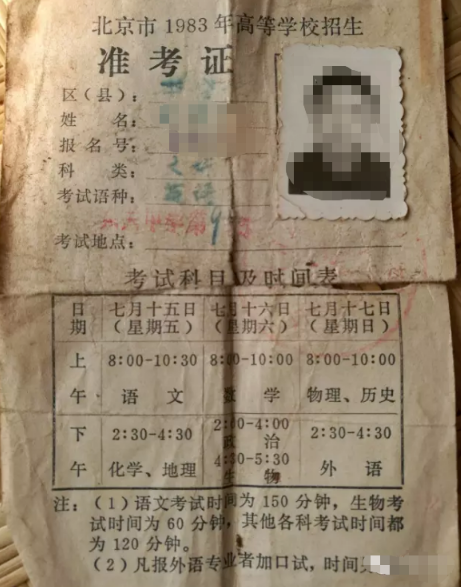 北京市 1983 年高等学校招生
准考证
区(县):
姓 名:
报 名 号:
科 类: 文科
考试语种: 英语
考试地点:
考试科目及时间表
日期 七月十五日(星期五) 七月十六日(星期六) 七月十七日(星期日)
上午 8:00-10:30 8:00-10:00 8:00-10:00
语 文 数 学 物理、历史
下午 2:30-4:30 2:00-4:00 政 治 2:30-4:30
化学、地理 4:30-5:30 生 物 外 语
注:(1)语文考试时间为 150 分钟,生物考
试时间为 60 分钟,其他各科考试时间都
为 120 分钟。
(2)凡报外语专业者加口试,时间